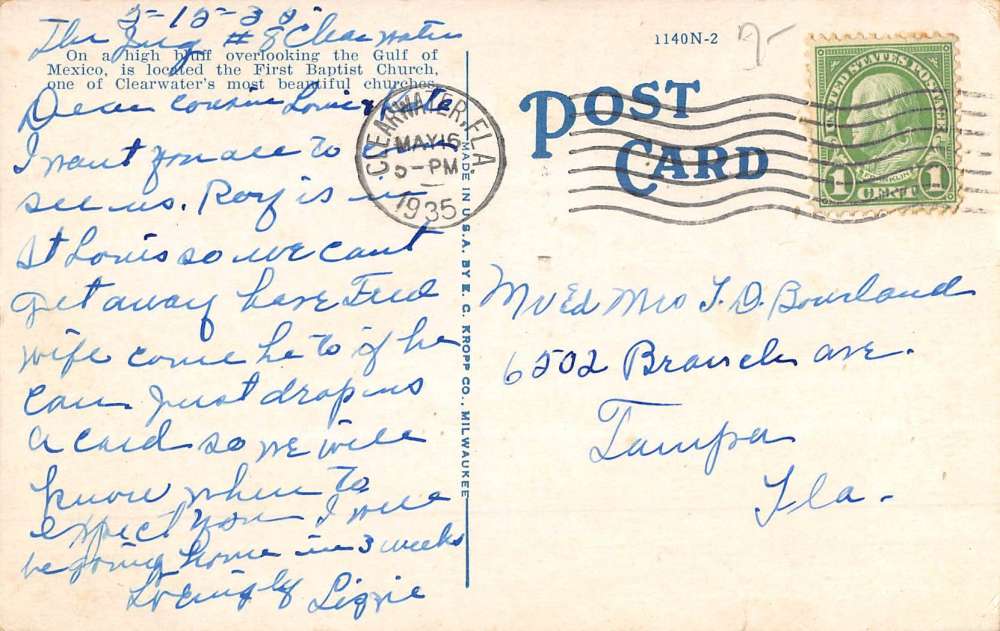 5-15-35
The Jug #8 Clearwater
On a high bluff overlooking the Gulf of
Mexico, is located the First Baptist Church,
one of Clearwater's most beautiful churches.
Dear cousin
I want you all to
see us. Roy is in
St Louis so we cant
get away have Fred
wife come he to if he
can. Just drop us
a card so we will
know when to
expect you I will
be going home in 3 weeks
Lovingly Lizzie
MADE IN U.S.A. BY E. C. KROPP CO., MILWAUKEE
1140N-2
POST
CARD
CLEARWATER, FLA
MAY 16
5-PM
1935
UNITED STATES POSTAGE
FRANKLIN
1 CENT 1
Mr Ed Mrs J. D. Bourland
6502 Branch ave.
Tampa
Fla.